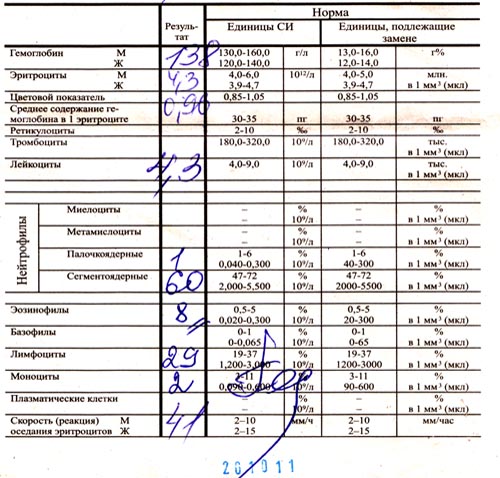 Резуль-тат Норма
Единицы СИ Единицы, подлежащие замене
Гемоглобин М 138 130,0-160,0 г/л 13,0-16,0 г%
Ж 120,0-140,0 12,0-14,0
Эритроциты М 4,3 4,0-6,0 10¹²/л 4,0-5,0 млн.
Ж 3,9-4,7 3,9-4,7 в 1 мм³ (мкл)
Цветовой показатель 0,90 0,85-1,05 0,85-1,05
Среднее содержание ге-
моглобина в 1 эритроците 30-35 пг 30-35 пг
Ретикулоциты 2-10 ‰ 2-10 ‰
Тромбоциты 180,0-320,0 10⁹/л 180,0-320,0 тыс.
в 1 мм³ (мкл)
Лейкоциты 4,3 4,0-9,0 10⁹/л 4,0-9,0 тыс.
в 1 мм³ (мкл)
Нейтрофилы
Миелоциты – % – %
– 10⁹/л – в 1 мм³ (мкл)
Метамислоциты – % – %
– 10⁹/л – в 1 мм³ (мкл)
Палочкоядерные 1 1-6 % 1-6 %
0,040-0,300 10⁹/л 40-300 в 1 мм³ (мкл)
Сегментоядерные 60 47-72 % 47-72 %
2,000-5,500 10⁹/л 2000-5500 в 1 мм³ (мкл)
Эозинофилы 8 0,5-5 % 0,5-5 %
0,020-0,300 10⁹/л 20-300 в 1 мм³ (мкл)
Базофилы 0-1 % 0-1 %
0-0,065 10⁹/л 0-65 в 1 мм³ (мкл)
Лимфоциты 29 19-37 % 19-37 %
1,200-3,000 10⁹/л 1200-3000 в 1 мм³ (мкл)
Моноциты 2 3-11 % 3-11 %
0,090-0,600 10⁹/л 90-600 в 1 мм³ (мкл)
Плазматические клетки – % – %
– 10⁹/л – в 1 мм³ (мкл)
Скорость (реакция) М 41 2–10 мм/ч 2–10 мм/час
оседания эритроцитов Ж 2–15 2–15
261011